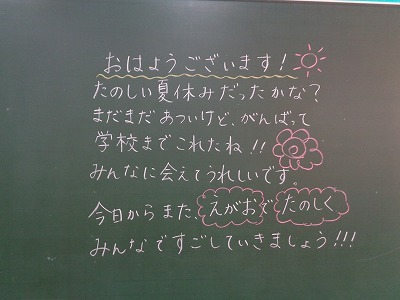 おはようございます!
たのしい夏休みだったかな?
まだまだあついけど、がんばって
学校までこれたね!!
みんなに会えてうれしいです。
今日からまた、えがおでたのしく
みんなですごしていきましょう!!!